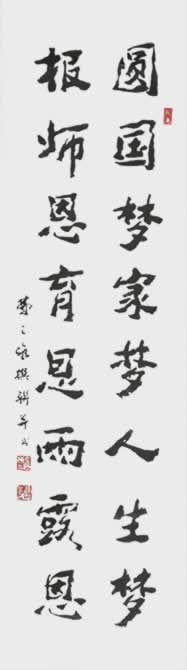 圆国梦家梦人生梦
报师恩育恩雨露恩
撰联并书